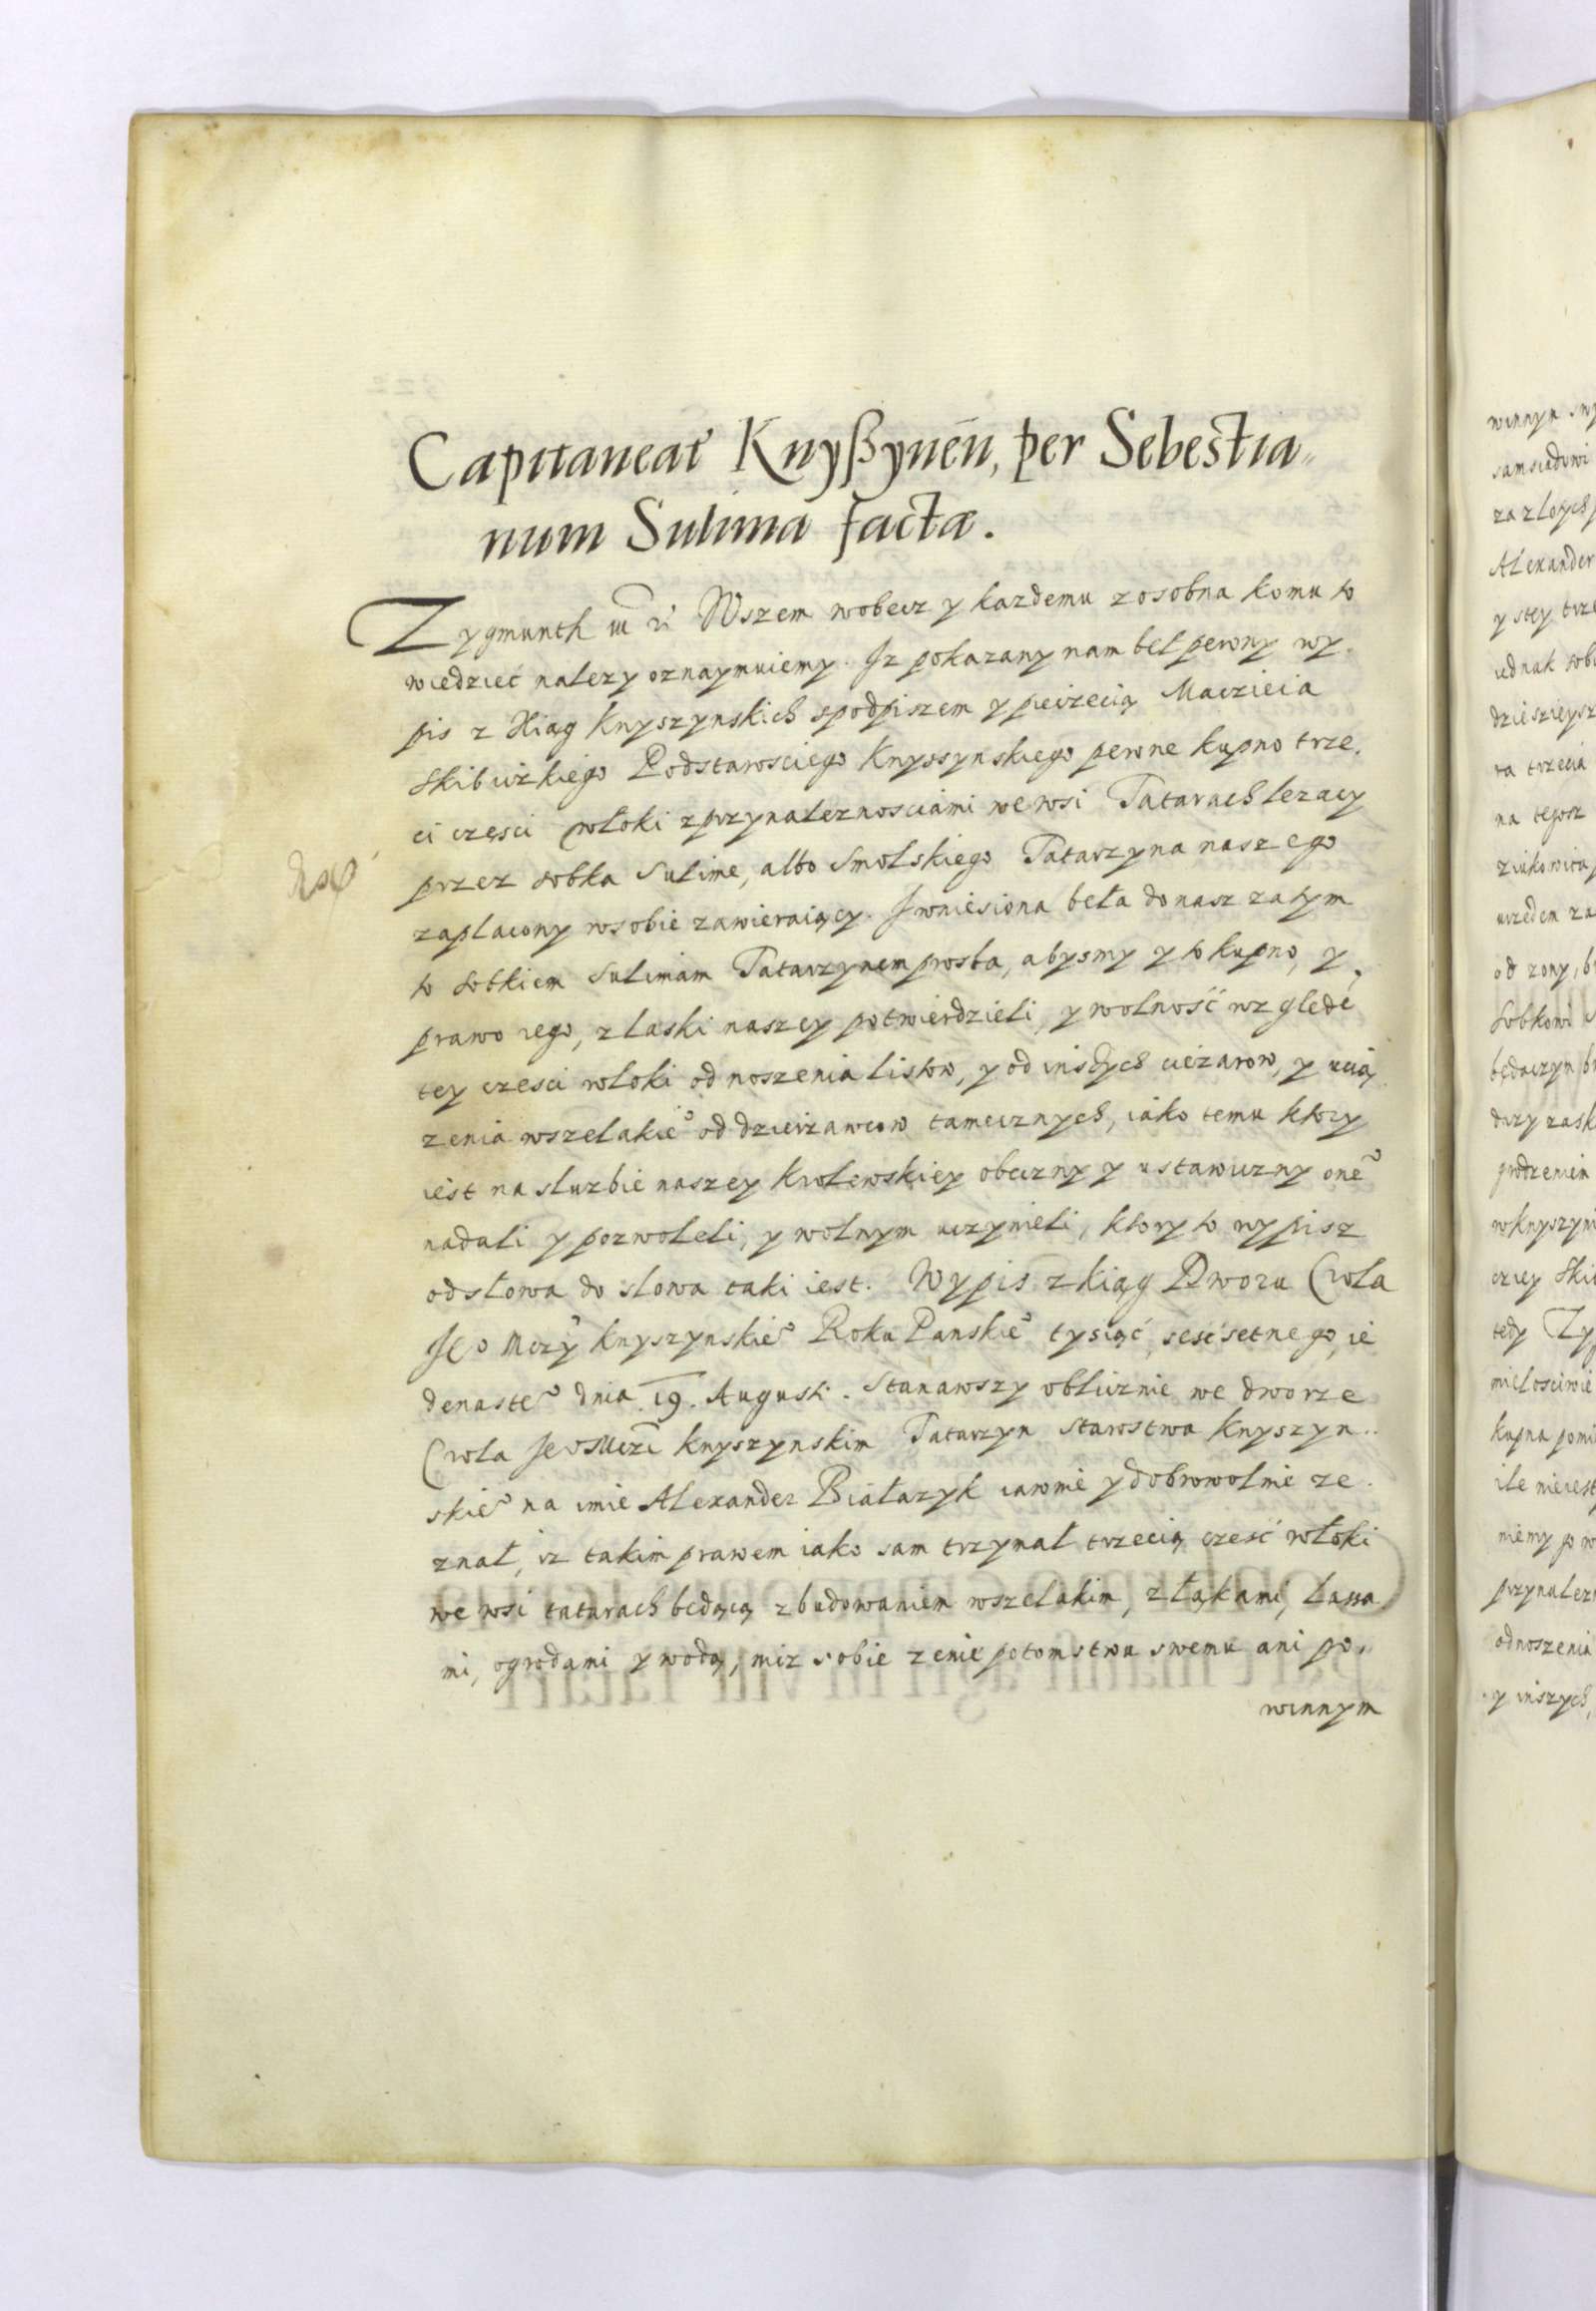 Capitaneat Knyßynen, per Sebestia
num Sulima factæ.
Zygmunth III Wszem wobecz y kazdemu zosobna komu to
wiedzieć nalezy oznaymuiemy. Iz pokazany nam bel pewny wy
pis z Xiąg Knyszynskich spodpiszem y pieczecią Macziecia
Skibiczkiego Podstarosciego Knyssynskiego pewne kupno trze,
ci częsci włoki zprzynaleznosciami we wsi Tatarach lezacy
przez sobka Sulime, albo Smolskiego Tatarzyna naszego
zaplacony wsobie zawieraiący. I wniesiona beła do nasz zatym
to sobkiem Sulimam Tatarzynem prosba, abysmy y to kupno, y
prawo iego, z laski naszey potwierdzieli, y wolność wzglede
tey czesci wloki od noszenia listow, y od inszych cięzarow, y ucią
zenia wszelakie° od dzierzawcow tamecznych, iako temu ktory
iest na sluzbie naszey krolewskiey obeczny y ustawiczny one°
nadali y pozwoleli, y wolnym uczynieli, ktory to wypisz
odsłowa do slowa taki iest. Wypis z kiąg Dworu Crola
Je° Mczy knyszynskie° Roku Panskie° tysiąć, sesćsetnego, ie
denaste° dnia 19. Augusti. Stanawszy obliznie we dworze
Crola Je° Mczi knyszynskim Tatarzyn starostwa knyszyn
skie° na imie Alexander Białazyk iawnie y dobrowolnie ze
znał, iz takim prawem iako sam trzymał trzecią czesć włoki
we wsi tatarach będącą z budowaniem wszelakim, z łąkami, lassa
mi, ogrodami y wodą, niz sobie zenie potomstwu swemu ani po,
winnym
winnym
za zloych
Alexander
y stey trze
ta trzecia
na tegosz
od zony,
Sobkowi
tedy Zy
odnoszenia
y inszych,